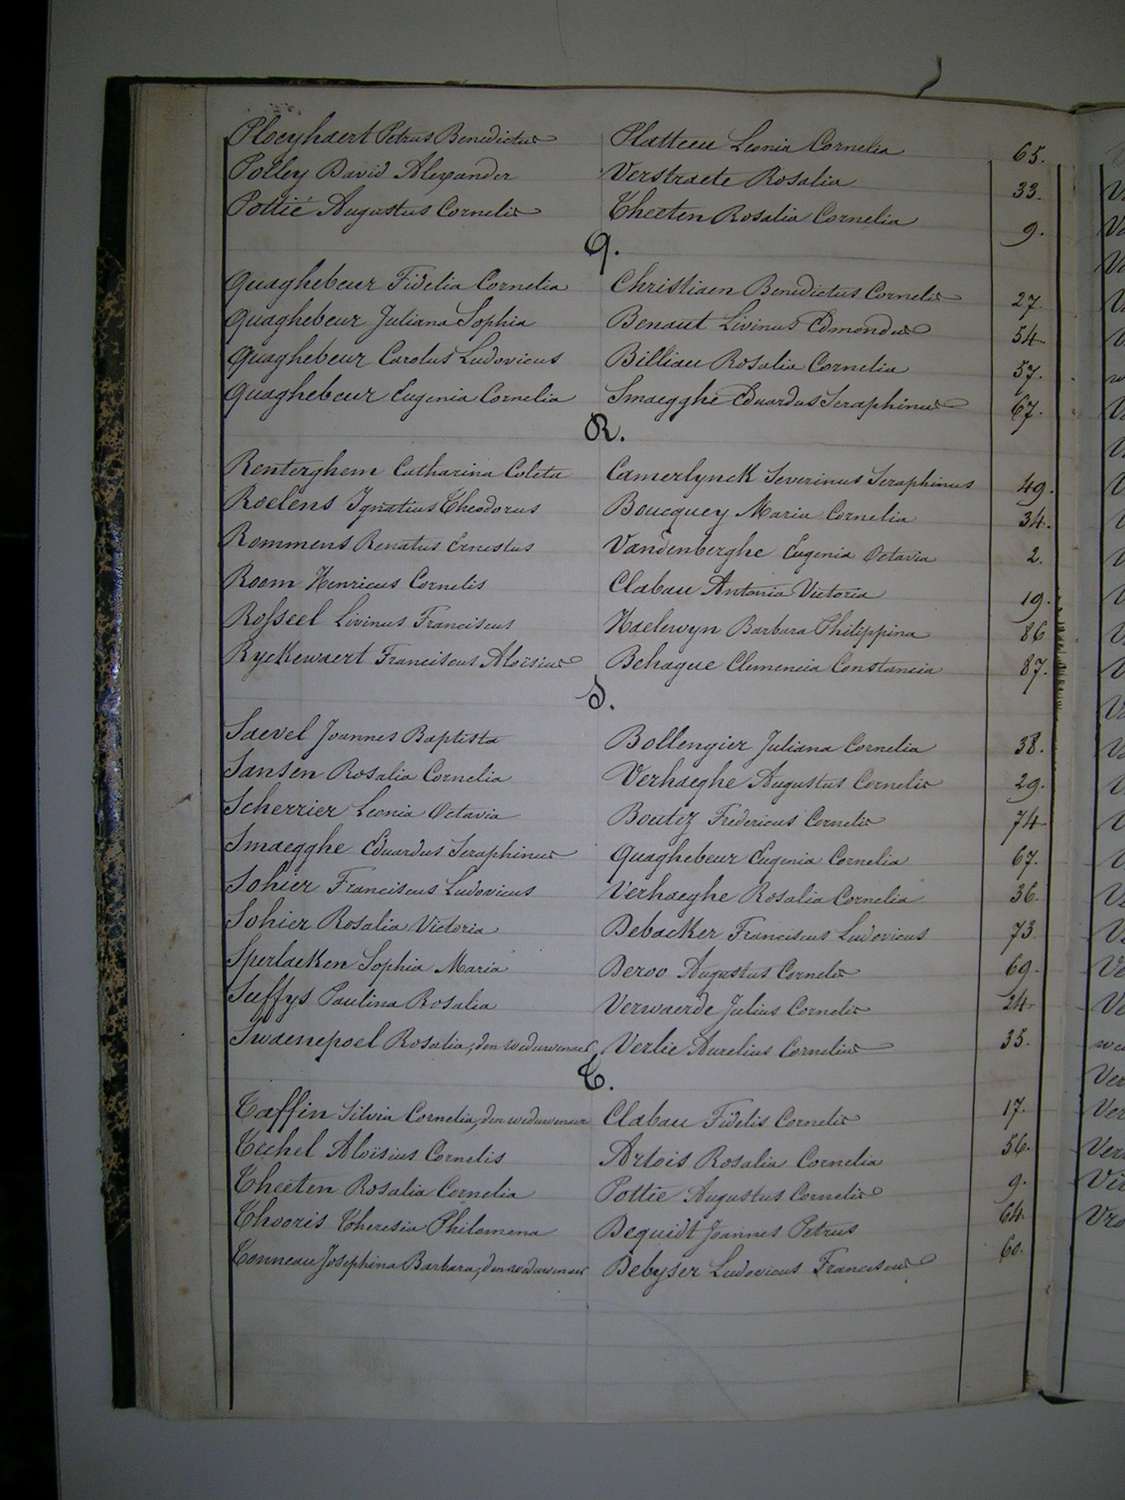 Ploeyhaert Petrus Benedictus Platteeu Leonia Cornelia 65.
Polley David Alexander Verstraete Rosalia 33.
Pottié Augustus Cornelis Theeten Rosalia Cornelia 9.
Q.
Quaghebeur Fidelia Cornelia Christiaen Benedictus Cornelis 27.
Quaghebeur Juliana Sophia Benaut Livinus Edmondus 54.
Quaghebeur Carolus Ludovicus Billiau Rosalia Cornelia 57.
Quaghebeur Eugenia Cornelia Smaegghe Eduardus Seraphinus 67.
R.
Renterghem Catharina Coleta Camerlynck Severinus Seraphinus 49.
Roelens Ignatius Theodorus Boucquey Maria Cornelia 34.
Rommens Renatus Ernestus Vandenberghe Eugenia Octavia 2.
Room Henricus Cornelis Clabau Antonia Victoria 19.
Rosseel Livinus Franciscus Haelewyn Barbara Philippina 86
Ryckewaert Franciscus Aloïsius Behague Clemencia Constancia 87.
S.
Saevel Joannes Baptista Bollengier Juliana Cornelia 38.
Sansen Rosalia Cornelia Verhaeghe Augustus Cornelis 29.
Scherrier Leonia Octavia Boutez Fredericus Cornelis 74
Smaegghe Eduardus Seraphinus Quaghebeur Eugenia Cornelia 67.
Sohier Franciscus Ludovicus Verhaeghe Rosalia Cornelia 36.
Sohier Rosalia Victoria Debacker Franciscus Ludovicus 73.
Sperlaeken Sophia Maria Deroo Augustus Cornelis 69.
Suffys Paulina Rosalia Verwaerde Julius Cornelis 24.
Swaenepoel Rosalia, den weduwenaer Verlie Aurelius Cornelius 35.
T.
Taffin Silvia Cornelia, den weduwenaer Clabau Fidelis Cornelis 17.
Techel Aloïsius Cornelis Artois Rosalia Cornelia 56.
Theeten Rosalia Cornelia Pottie Augustus Cornelis 9.
Thooris Theresia Philomena Dequidt Joannes Petrus 64.
Tonneau Josephina Barbara, den weduwenaer Debyser Ludovicus Franciscus 60.